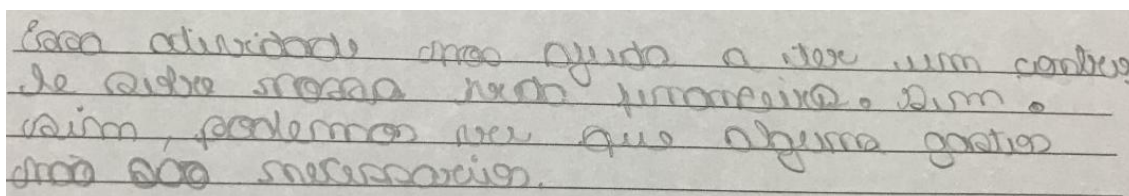 Essa atividade nos ajuda a ter um controle
de sobre nossa vida financeira. Sim.
Sim, podemos ver que alguns gastos
não são necessarios.